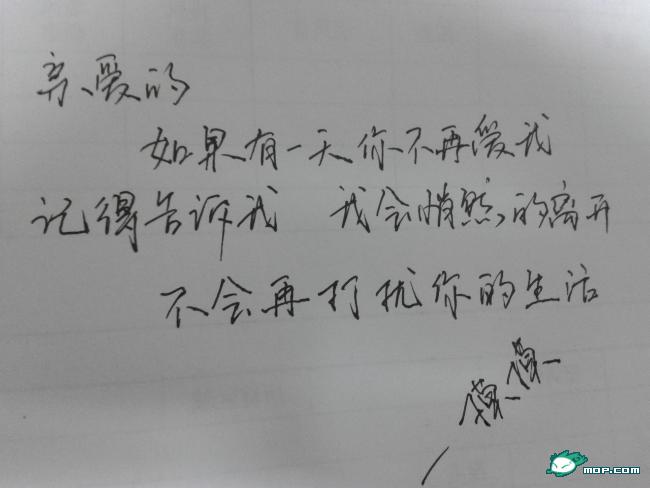 亲爱的
如果有一天你不再爱我
记得告诉我 我会悄然的离开
不会再打扰你的生活
傻傻
MOP.COM